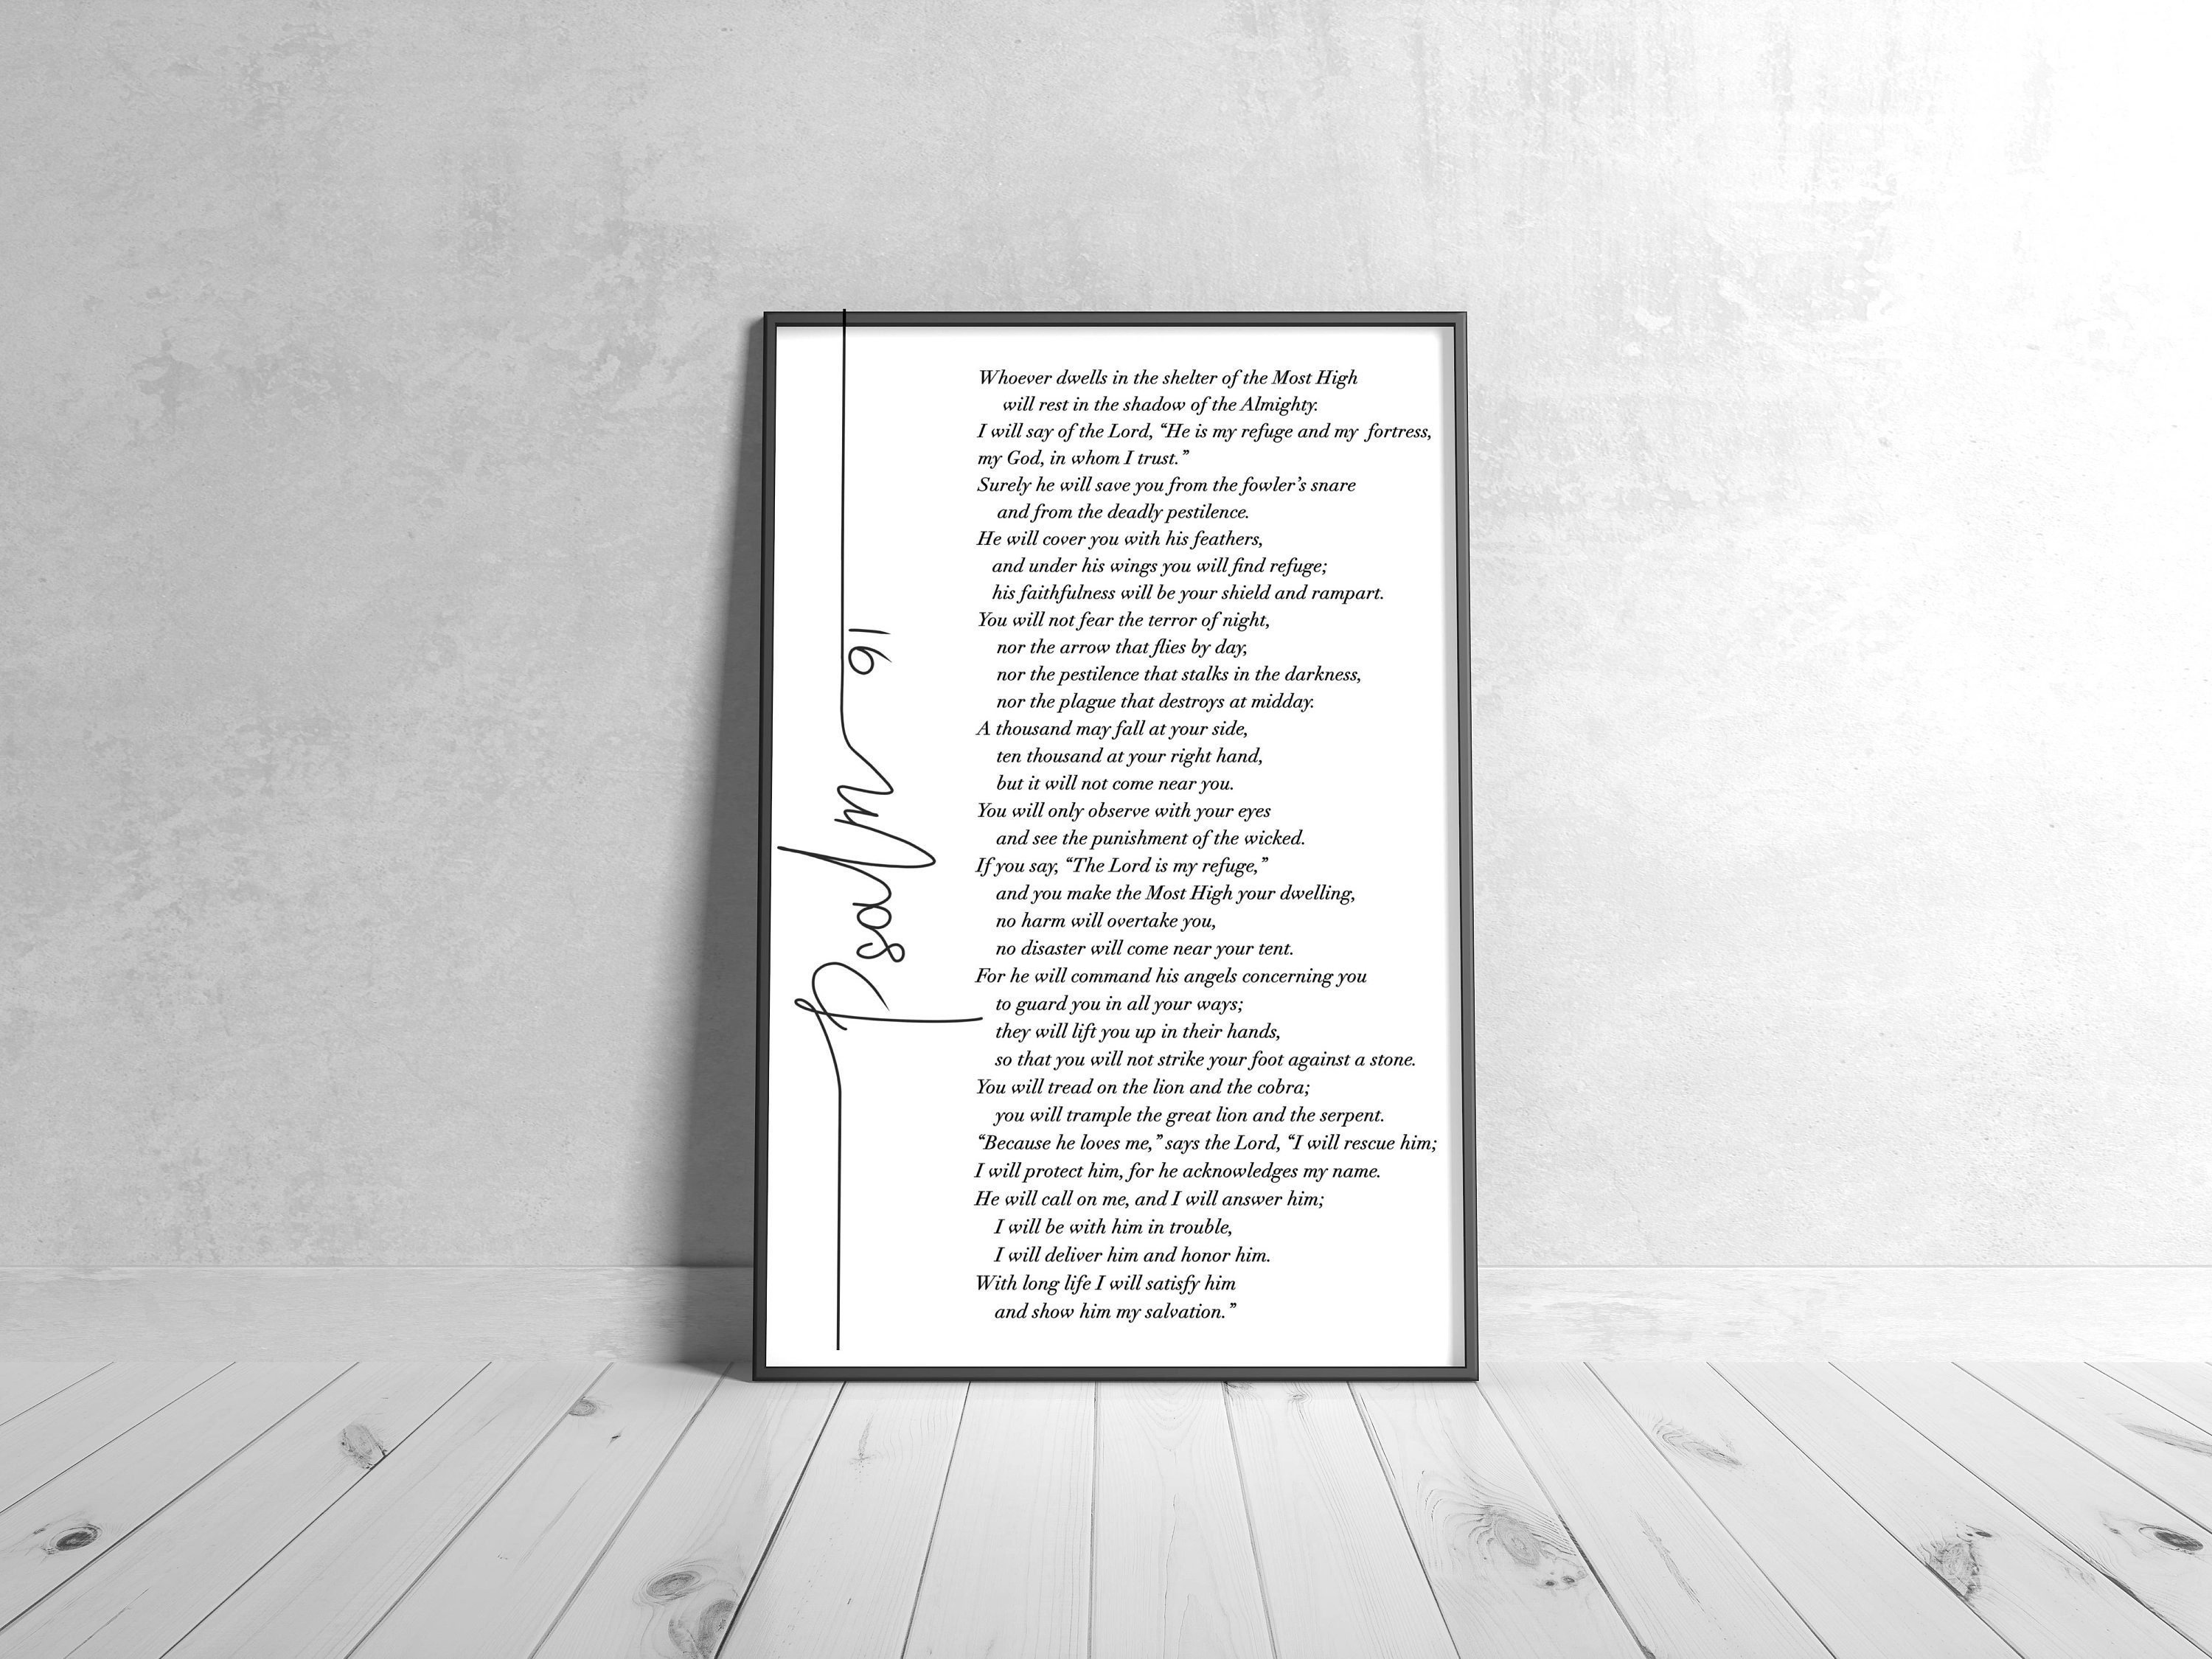 Psalm 91
Whoever dwells in the shelter of the Most High
will rest in the shadow of the Almighty.
I will say of the Lord, “He is my refuge and my fortress,
my God, in whom I trust.”
Surely he will save you from the fowler’s snare
and from the deadly pestilence.
He will cover you with his feathers,
and under his wings you will find refuge;
his faithfulness will be your shield and rampart.
You will not fear the terror of night,
nor the arrow that flies by day,
nor the pestilence that stalks in the darkness,
nor the plague that destroys at midday.
A thousand may fall at your side,
ten thousand at your right hand,
but it will not come near you.
You will only observe with your eyes
and see the punishment of the wicked.
If you say, “The Lord is my refuge,”
and you make the Most High your dwelling,
no harm will overtake you,
no disaster will come near your tent.
For he will command his angels concerning you
to guard you in all your ways;
they will lift you up in their hands,
so that you will not strike your foot against a stone.
You will tread on the lion and the cobra;
you will trample the great lion and the serpent.
“Because he loves me,” says the Lord, “I will rescue him;
I will protect him, for he acknowledges my name.
He will call on me, and I will answer him;
I will be with him in trouble,
I will deliver him and honor him.
With long life I will satisfy him
and show him my salvation.”